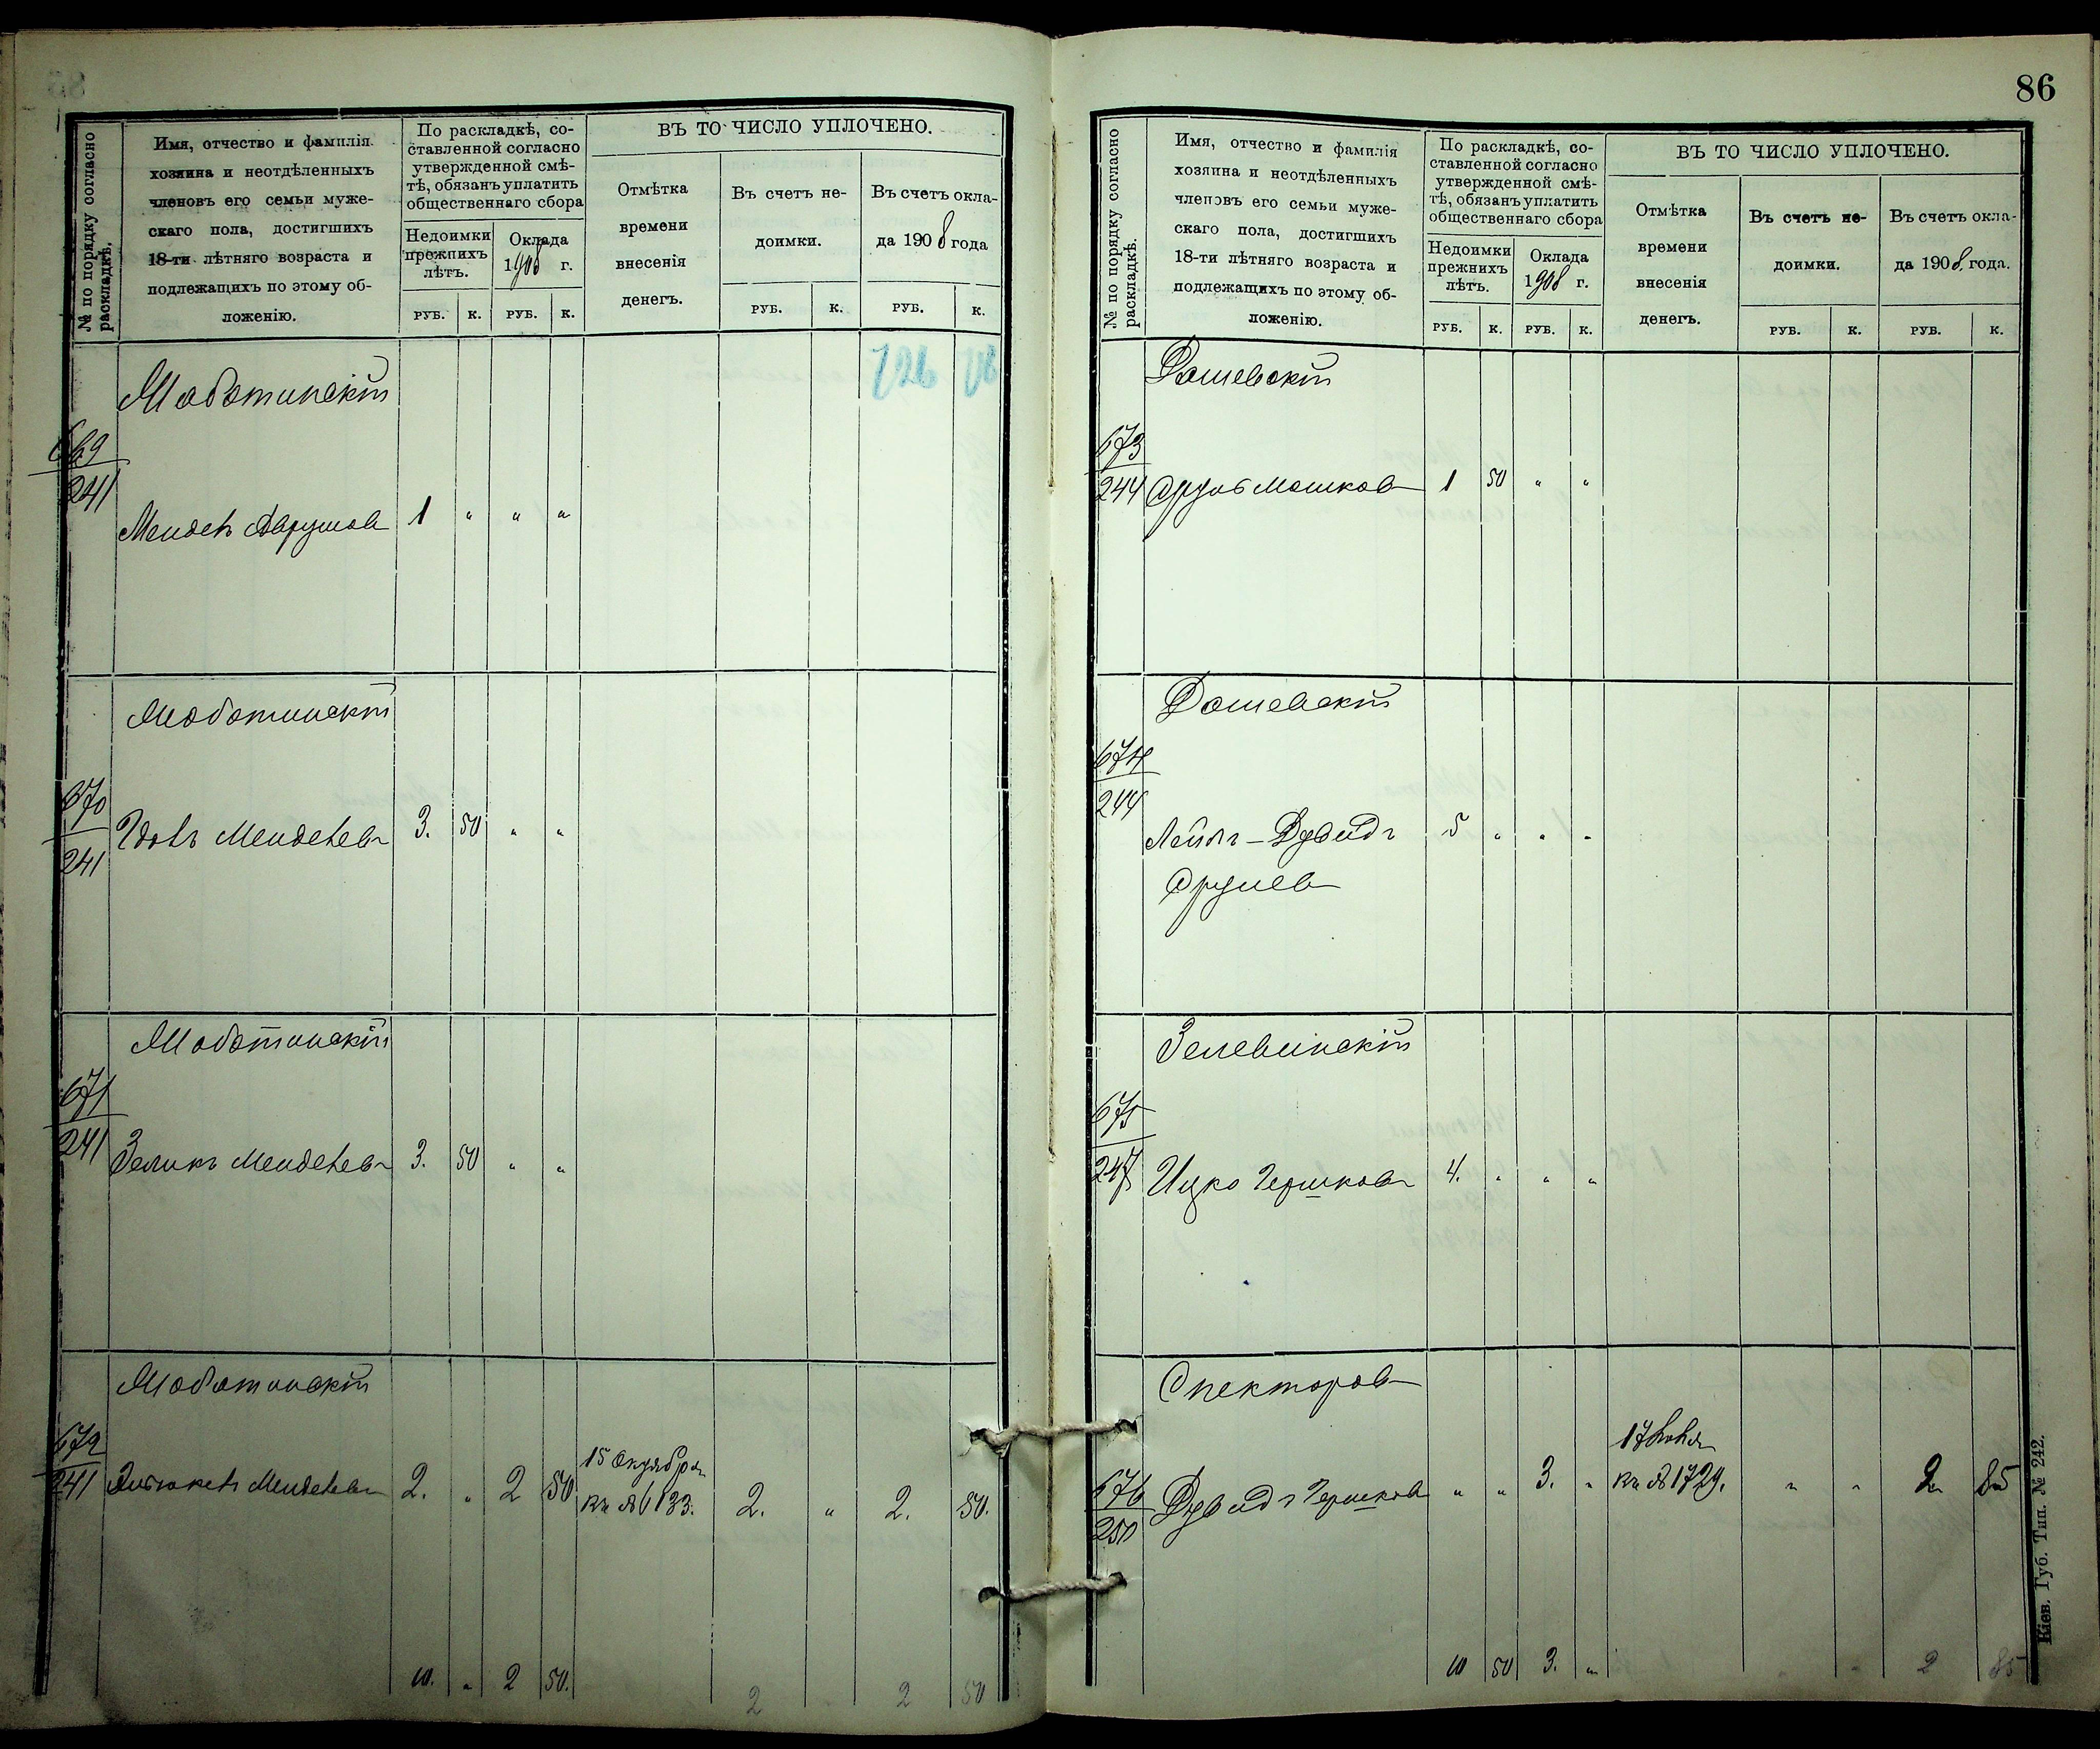 № по порядку согласно раскладкѣ.
Имя, отчество и фамилія
хозяина и неотдѣленныхъ
членовъ его семьи муже-
скаго пола, достигшихъ
18-ти лѣтняго возраста и
подлежащихъ по этому об-
ложенію.
По раскладкѣ, со-
ставленной согласно
утвержденной смѣ-
тѣ, обязанъ уплатить
общественнаго сбора
Недоимки
прежнихъ
лѣтъ.
Оклада
1908 г.
РУБ. К. РУБ. К.
ВЪ ТО ЧИСЛО УПЛОЧЕНО.
Отмѣтка
времени
внесенія
денегъ.
Въ счетъ не-
доимки.
РУБ. К.
Въ счетъ окла-
да 1908 года
РУБ. К.
Мадатинскій
669
241
Мендель Аврумов 1 " " "
Мадатинскій
670
241
Менделев 3. 50 " "
Мадатинскій
671
241
Зеликъ Менделев 3. 50 " "
Мадатинскій
672
241
Менделев 2. " 2 50
15 Октября
кв № 1133. 2. " 2. 50.
10. " 2 50.
2 " 2 50
86
№ по порядку согласно раскладкѣ.
Имя, отчество и фамилія
хозяина и неотдѣленныхъ
членовъ его семьи муже-
скаго пола, достигшихъ
18-ти лѣтняго возраста и
подлежащихъ по этому об-
ложенію.
По раскладкѣ, со-
ставленной согласно
утвержденной смѣ-
тѣ, обязанъ уплатить
общественнаго сбора
Недоимки
прежнихъ
лѣтъ.
Оклада
1908 г.
РУБ. К. РУБ. К.
ВЪ ТО ЧИСЛО УПЛОЧЕНО.
Отмѣтка
времени
внесенія
денегъ.
Въ счетъ не-
доимки.
РУБ. К.
Въ счетъ окла-
да 1908 года.
РУБ. К.
Дашевскій
673
244
Сруль Мошков 1 50 " "
Дашевскій
674
244
Лейба-Дувидъ 5 " " "
Срулев
Зелевинскій
675
247
Ицко Гершков 4. " " "
Спекторов
676
250
Дувидъ Гершков " " 3. "
17 Іюля
кв № 1729. " " 2 85
10 50 3. "
" 2 85
Кіев. Губ. Тип. № 242.